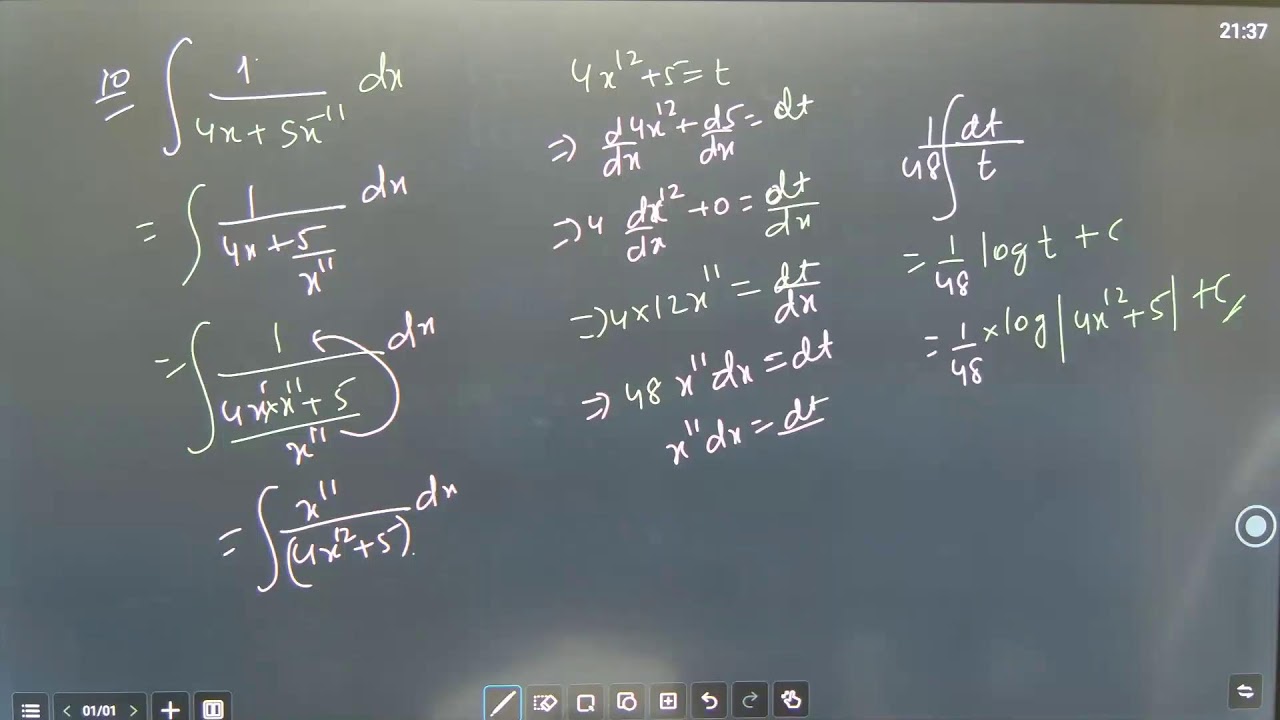 21:37
10 ∫ 1/(4x + 5x⁻¹¹) dx
= ∫ 1/(4x + 5/x¹¹) dx
= ∫ 1/((4x¹×x¹¹ + 5)/x¹¹) dx
= ∫ x¹¹/(4x¹² + 5) dx
4x¹² + 5 = t
⇒ d4x¹²/dx + d5/dx = dt
⇒ 4 dx¹²/dx + 0 = dt/dx
⇒ 4×12x¹¹ = dt/dx
⇒ 48 x¹¹ dx = dt
x¹¹ dx = dt
1/48 ∫ dt/t
= 1/48 log t + c
= 1/48 × log |4x¹² + 5| + c
01/01